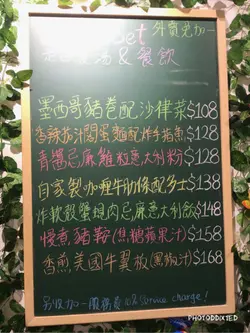 Set 外賣另加一
湯 & 餐飲
墨西哥豬卷配沙律菜 $108
香辣茄汁闊蛋麵配炸手指魚 $128
青醬忌廉雞粒意大利粉 $128
自家製咖喱牛肋條配多士 $138
炸軟殼蟹蟹肉忌廉意大利飯 $148
慢煮豬鞍(焦糖蘋果汁) $158
香煎美國牛翼板(黑椒汁) $168
另收加一服務費 10% service charge!
PHOTODDIXTED